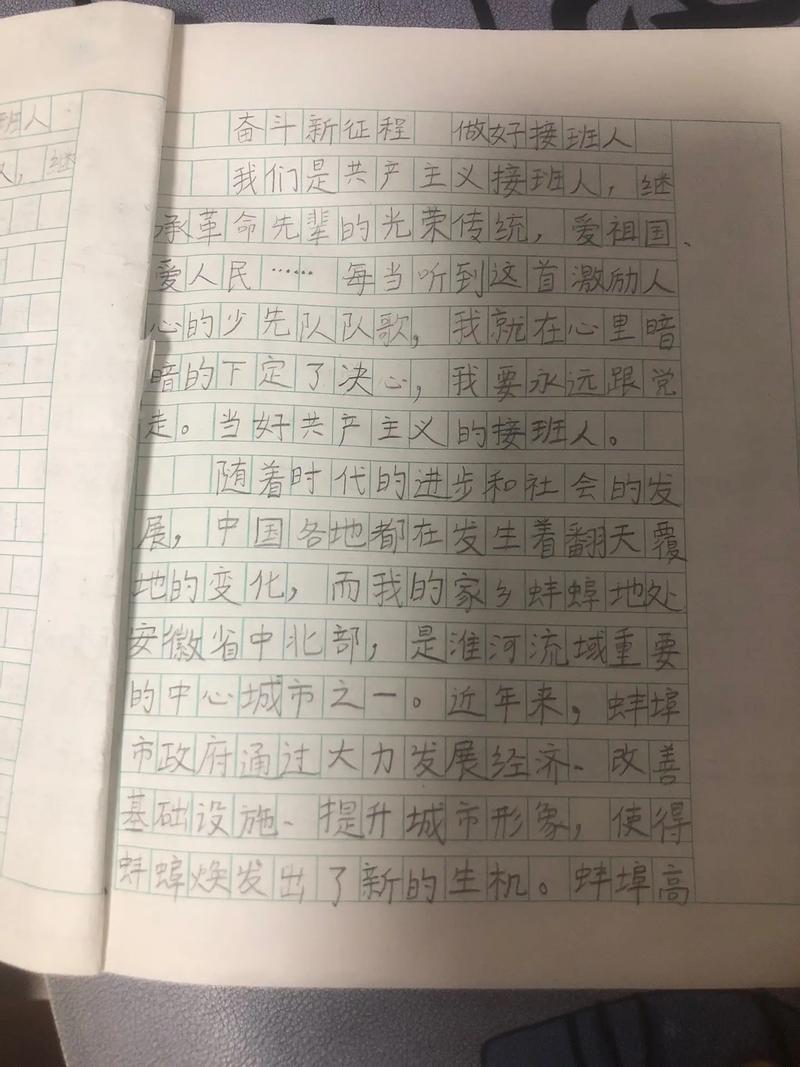 班人
继
奋斗新征程 做好接班人
我们是共产主义接班人，继
承革命先辈的光荣传统，爱祖国、
爱人民……每当听到这首激励人
心的少先队队歌，我就在心里暗
暗的下定了决心，我要永远跟党
走。当好共产主义的接班人。
随着时代的进步和社会的发
展，中国各地都在发生着翻天覆
地的变化，而我的家乡蚌蟑地处
安徽省中北部，是淮河流域重要
的中心城市之一。近年来，蚌埠
市政府通过大力发展经济、改善
基础设施、提升城市形象，使得
蚌蟑焕发出了新的生机。蚌埠高